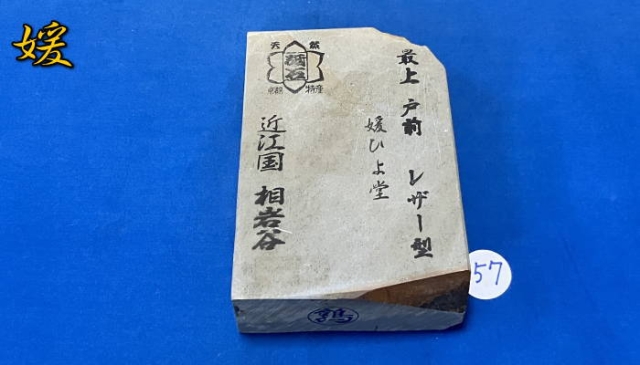 媛
天然
砥石
特産
最上 戸前 レザー型
媛ひよ堂
近江国 相岩谷
57